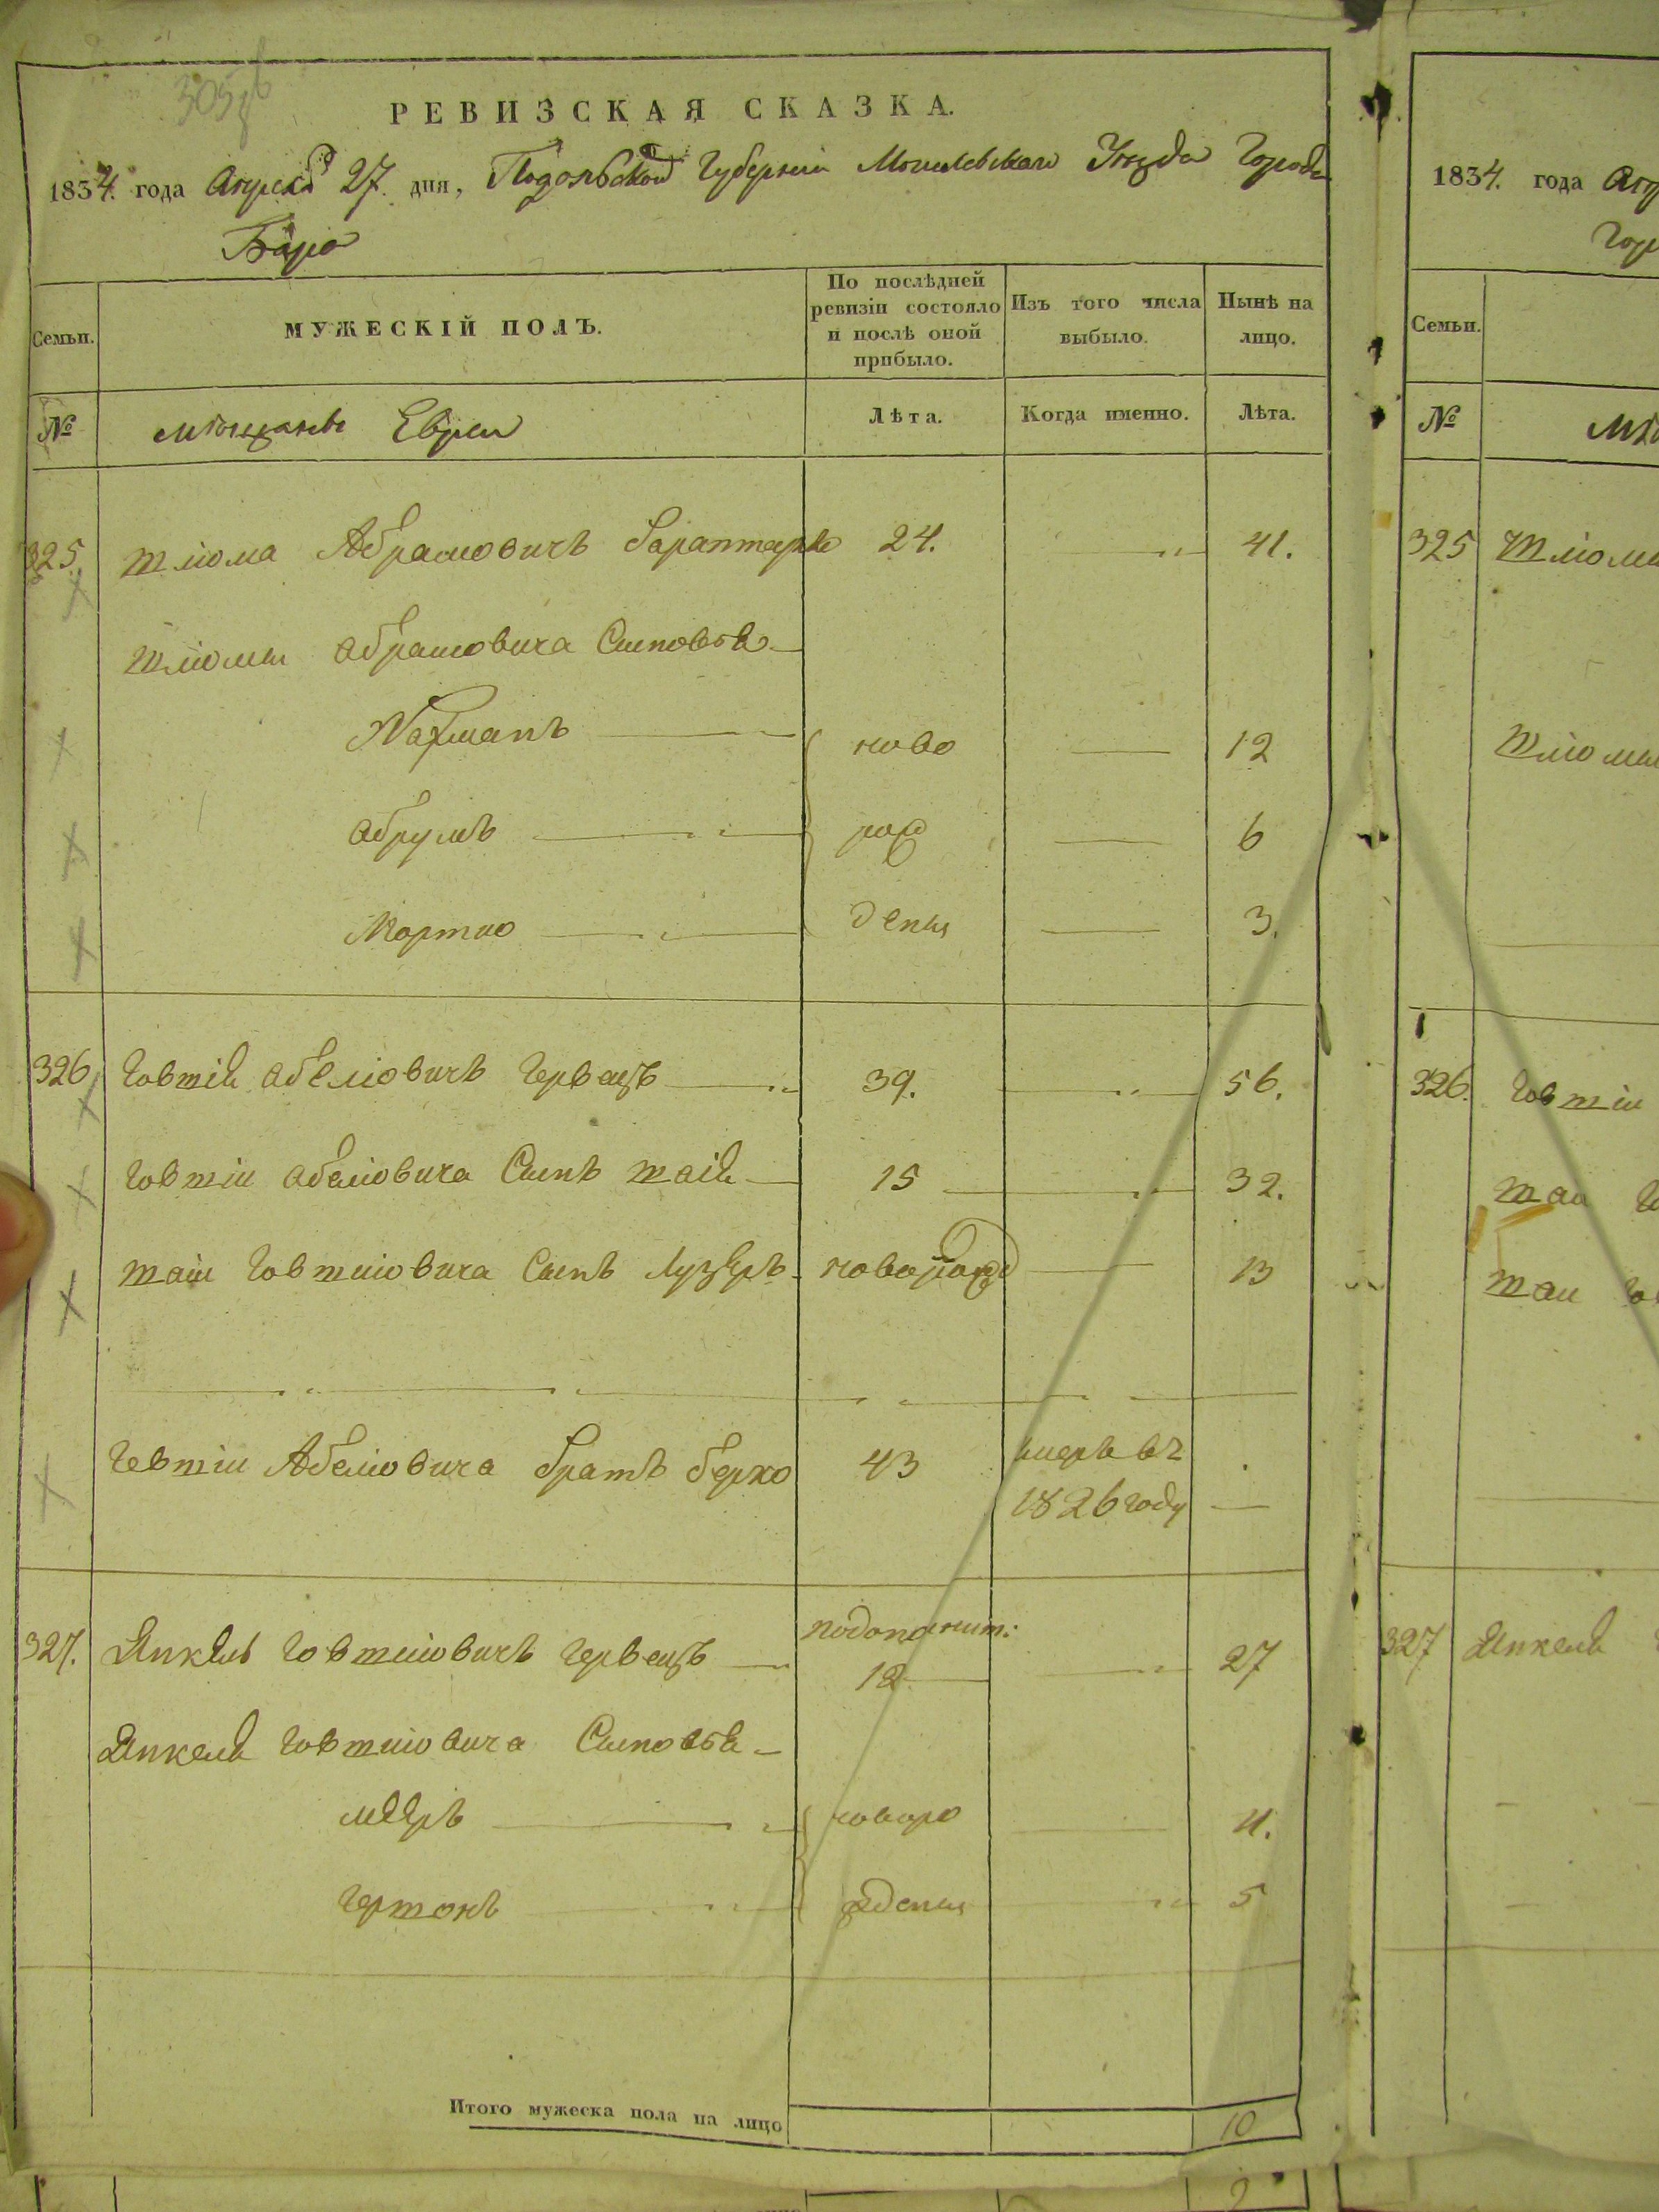 305
РЕВИЗСКАЯ СКАЗКА.
1834. года Апреля 27. дня, Подольской Губернiи Могилевскаго Уезда Города
Бара
Семьи.
МУЖЕСКІЙ ПОЛЪ.
По послѣдней ревизіи состояло и послѣ оной прибыло.
Изъ того числа выбыло.
Нынѣ на лицо.
№
мѣщане Евреи
Лѣта.
Когда именно.
Лѣта.
325. Шлiома Абрамовичъ 24. 41.
Шлiомы абрамовича Сыновья
Нахманъ ново 12
абрумъ рож 6
Мортко денъ 3.
326 Говшiй абелiовичъ 39. 56.
Говшiи абелiовича Сынъ шаiй 15 32.
шаiи Говшиiовича Сынъ Лузеръ новорож 13
Говшiи Абелiовича братъ берко 43 умеръ въ
1826 году
327. Янкель Говшиiовичъ подопанит:
12 27
Янкеля Говшиiовича Сыновья
мееръ новоро 11.
Гершонъ жденъ 5
Итого мужеска пола на лицо 10
1834. года
Семьи.
№
325 Шлiомы
Шлiомы
326. Говшiи
шаи
шаи
327 Янкеля